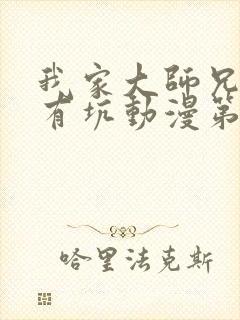 我家大師兄
有坑動漫第
哈里法克斯